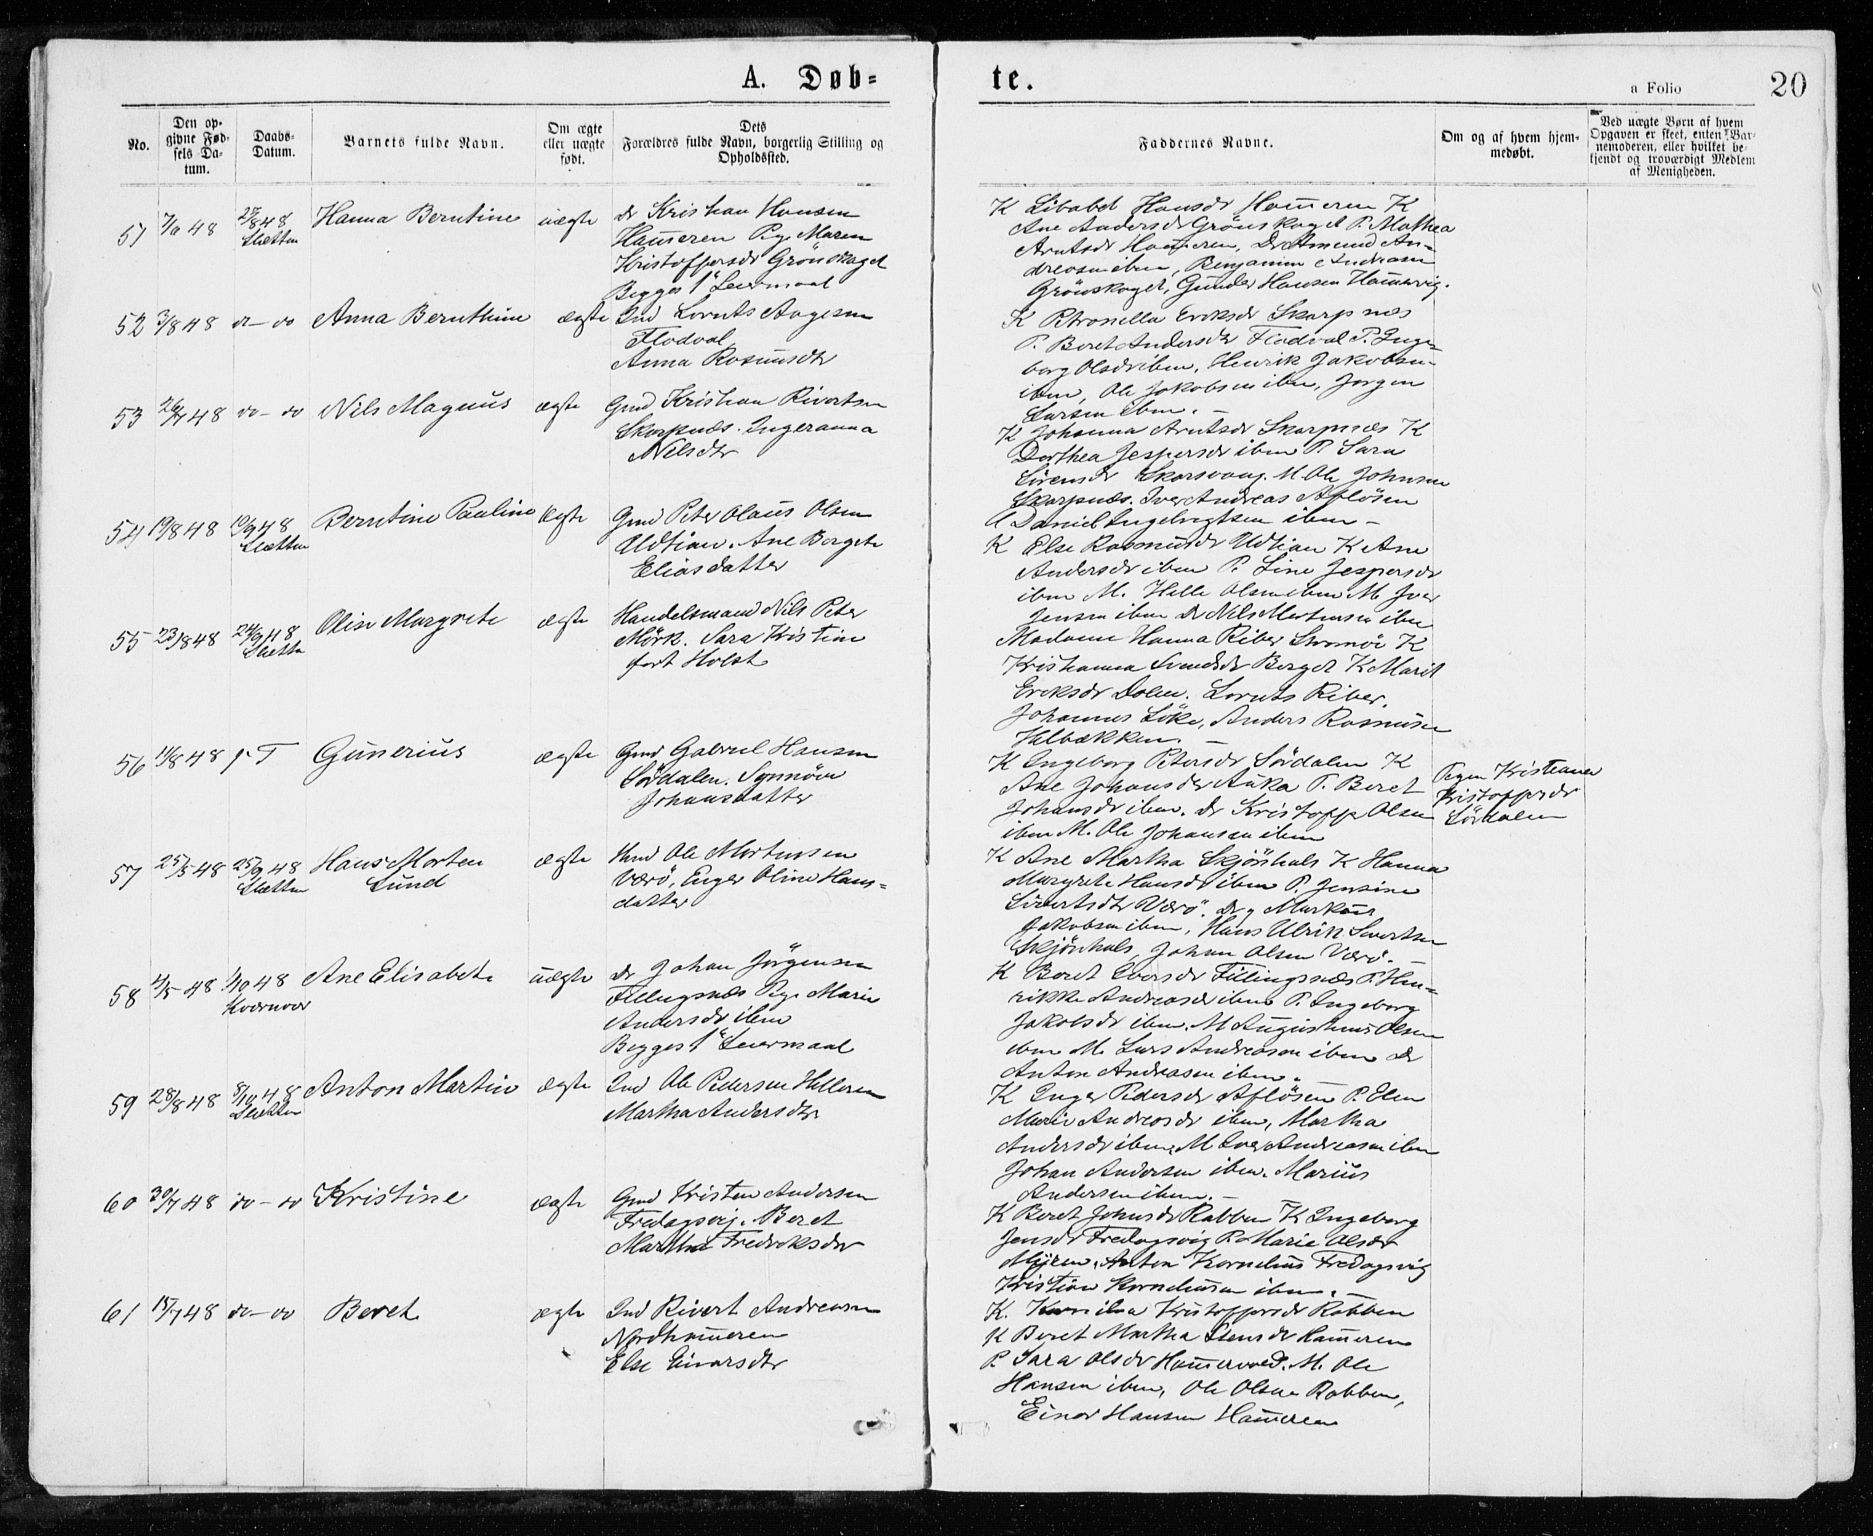 A. Døb-
te.
a Folio 20
No.
Den op-
givne Fød-
sels Da-
tum.
Daabs-
Datum.
Barnets fulde Navn.
Om ægte
eller uægte
født.
Dets
Forældres fulde Navn, borgerlig Stilling og
Opholdssted.
Faddernes Navne.
Om og af hvem hjem-
medøbt.
Ved uægte Børn af hvem
Opgaven er skeet, enten Bar-
nemoderen, eller hvilket be-
kjendt og troværdigt Medlem
af Menigheden.
51 48 27/8 48 Hanna Berntine uægte
Sletten
Dr Kristian Hansen
Hameren Pige Maren
Kristoffersdr Grönskaget
Begges 1ste Leiermaal
K Hansdr Hameren K
Ane Andersdr Grönskaget P. Mathea
Arntsdr Hameren, Dr Amund An-
dreasen ibm, Benjamin Andreasen
Grönskaget, Gunder Hansen Hamervig.
52 3/8 48 do-do Anna Bernthine ægte
Ind Lornts Aagesen
Flodval
Anna Rasmusdtr
K Petronella Eriksdr Skarpnes
P. Beret Andersdtr Flodval P. Inge-
borg Olsdr ibm, Henrik Jakobsen
ibm, Ole Jakobsen ibm, Jørgen
Larsen ibm.-
53 26/7 48 do-do Nils Magnus ægte
Gmd Kristian Rivertsen
Skarpnæs. Ingeranna
Nilsdtr
K Johanna Arntsdr Skarpnæs K
Dorthea Jespersdr ibm P. Sara
Sörensdr Skarsvaag. M. Ole Johnsen
Skarpnæs. Iver Andreas Aflösen
Daniel Ingebrigtsen ibm-
54 19/8 48 10/9 48 Berntine Pauline ægte
Sletten
Gmd Peter Olaus Olsen
Udtian. Ane Bergete
Eliasdatter
K Else Rasmusdr Udtian K Ane
Andersdr ibm P. Line Jespersdr
ibm M. Helle Olsen ibm M Iver
Jensen ibm Dr Nils Mortensen ibm
55 23/8 48 24/9 48 Oline Margrete ægte
Sletten
Handelsmand Nils Peter
Mörk. Sara Kristine
født Holst
Madame Hanna Riber Stromöi K
Kristianna Svendsdr Berget K Marit
Eriksdr Dolm. Lornts Riber,
Johannes Löke, Anders Rasmusen
Helbækken.-
56 11/8 48 Gunerius ægte
Gmd Gabriel Hansen
Sördalen. Synnöve
Johansdatter
K Ingeborg Petersdr Sördalen K
Ane Johansdr Auka P. Beret
Johansdr ibm. Dr Kristoffer Olsen
ibm M. Ole Johansen ibm
Pigen Kristianna
Kristoffersdr
Sördalen
57 25/5 48 25/9 48 Hans Morten ægte
Sletten Lund
Hmd Ole Mortensen
Værö, Inger Oline Hans-
datter
K Ane Martha Skjönhals K Hanna
Margrete Hansdr ibm P. Jensine
Sivertsdtr Værö. Markus
Jakobsen ibm, Hans Ulrik Sivertsen
Skjönhals, Johan Olsen Værö.-
58 4/5 48 1/10 48 Ane Elisabeth uægte
Kvernvær
Dr Johan Jørgensen
Fillingsnæs Pige Marie
Andersdr ibm
Begges 1ste Leiermaal
K Beret Iversdr Fillingsnæs P. Hen-
rikke Andreasdr ibm P. Ingeborg
Jakobsdr ibm. M Augustinus Olsen
ibm M. Lars Andreasen ibm Dr
Anton Andreasen ibm.
59 28/8 48 8/10 48 Anton Martin ægte
Sletten
Ind Ole Pedersen Helleren
Martha Andersdtr
K Inger Pedersdr Aflösen P. Elen
Marie Andreasdr ibm, Martha
Andersdr ibm, M Iver Andreasen ibm
Johan Andersen ibm. Marius
Andersen ibm.-
60 30/7 48 do-do Kristine ægte
Gmd Kristen Andersen
Fredagsvig. Beret
Martha Fredriksdtr
K Beret Johnsdr Rabben K Ingeborg
Jensdr Fredagsvig P. Marie Olsdr
Myren, Anton Kornelius Fredagsvig
Kristian Korneliusen ibm.-
61 15/7 48 do-do Beret ægte
Ind Rivert Andreasen
Nordhameren
Else Einarsdtr
K. Kornelia Kristoffersdr Rabben
K Beret Martha Stensdr Hameren
P. Sara Olsdr Hamervold. M. Ole
Hansen ibm, Ole Olsen Rabben,
Einar Hansen Hameren